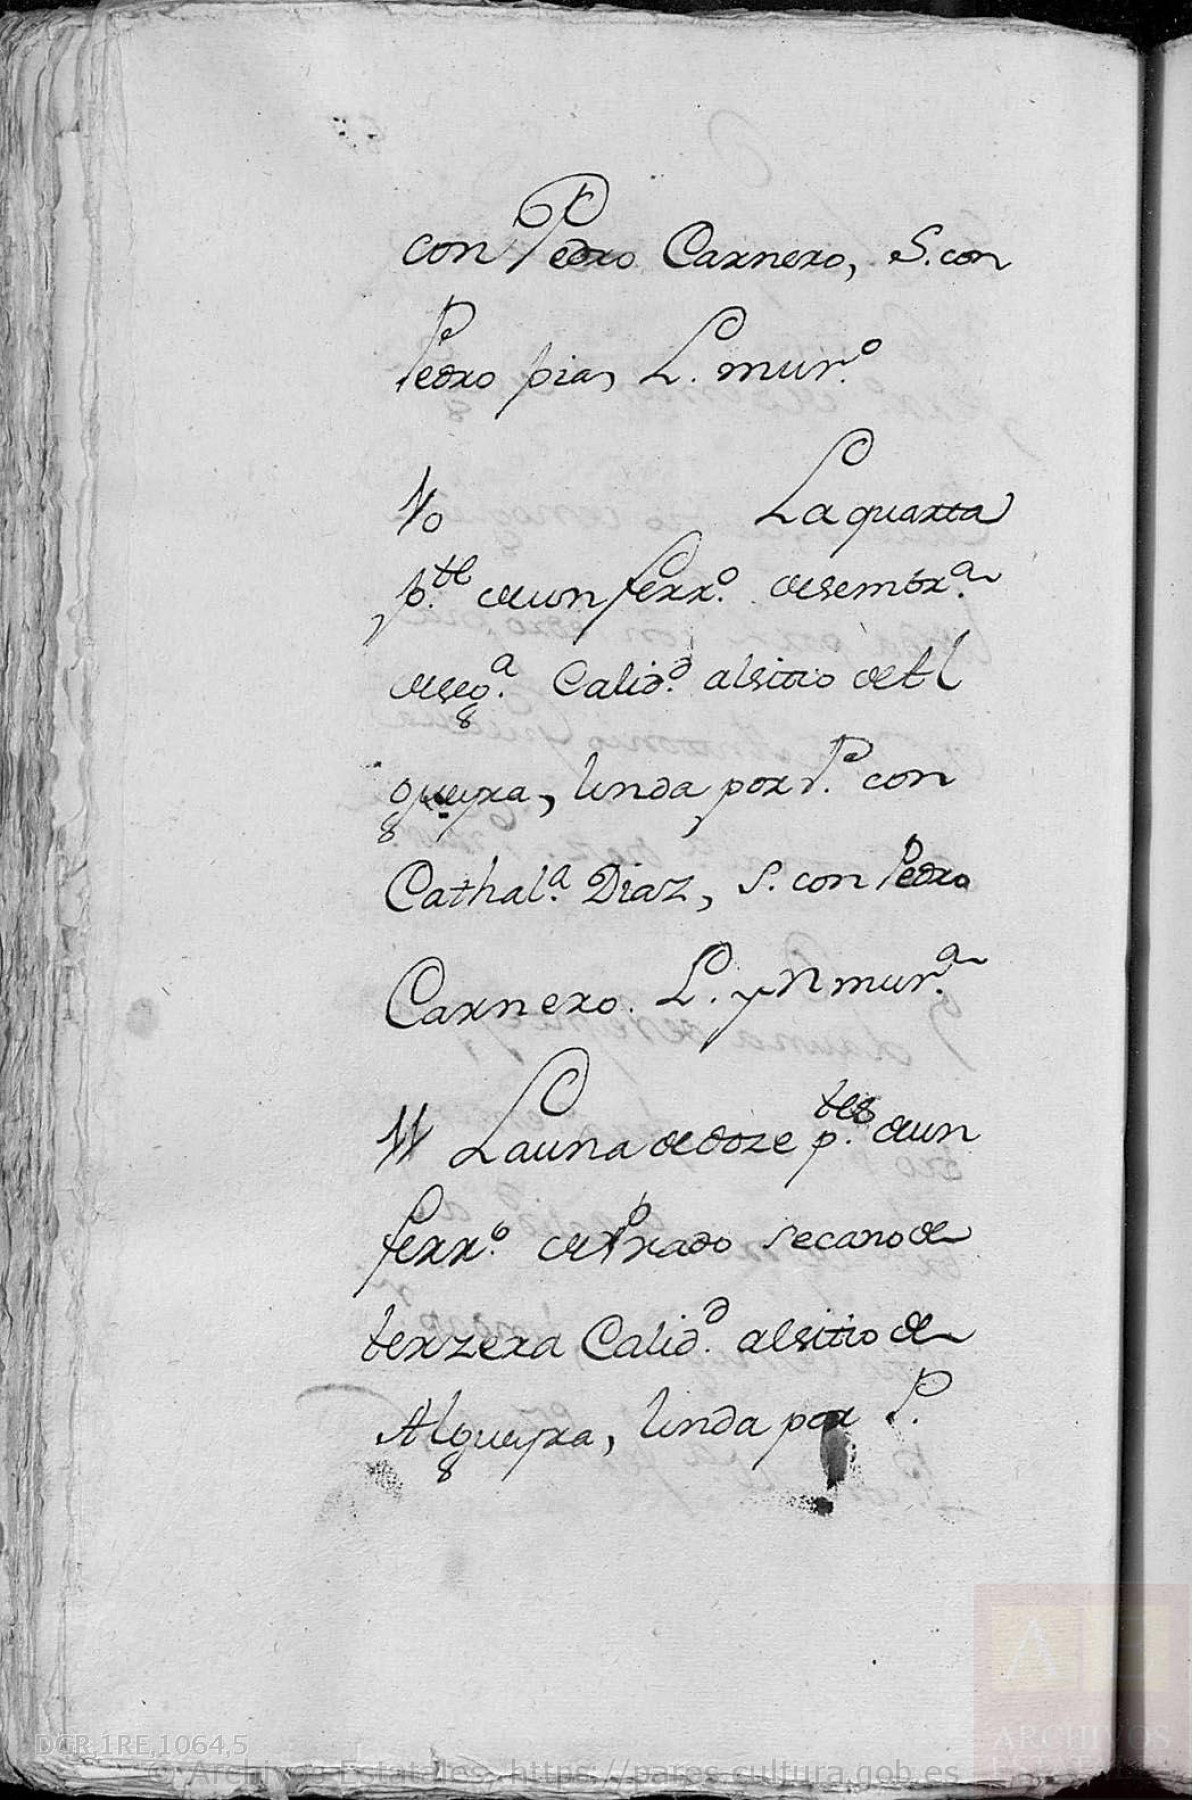 con Pedro Carnero, S. con
Pedro pias L. mur.º
10 La quarta
p.te de un ferr.º de sembr.a
de seg.a Calid.d al sitio de Al
gueyra, linda por P. con
Cathal.a Diaz, S. con Pedro
Carnero. L. y N mur.a
11 La una de doze p.tes de un
ferr.º de Prado secano de
terzera Calid.d al sitio de
Algueyra, linda por P.
DGR,1RE,1064,5
© Archivos Estatales, https://pares.cultura.gob.es
ARCHIVOS
ESTATALES